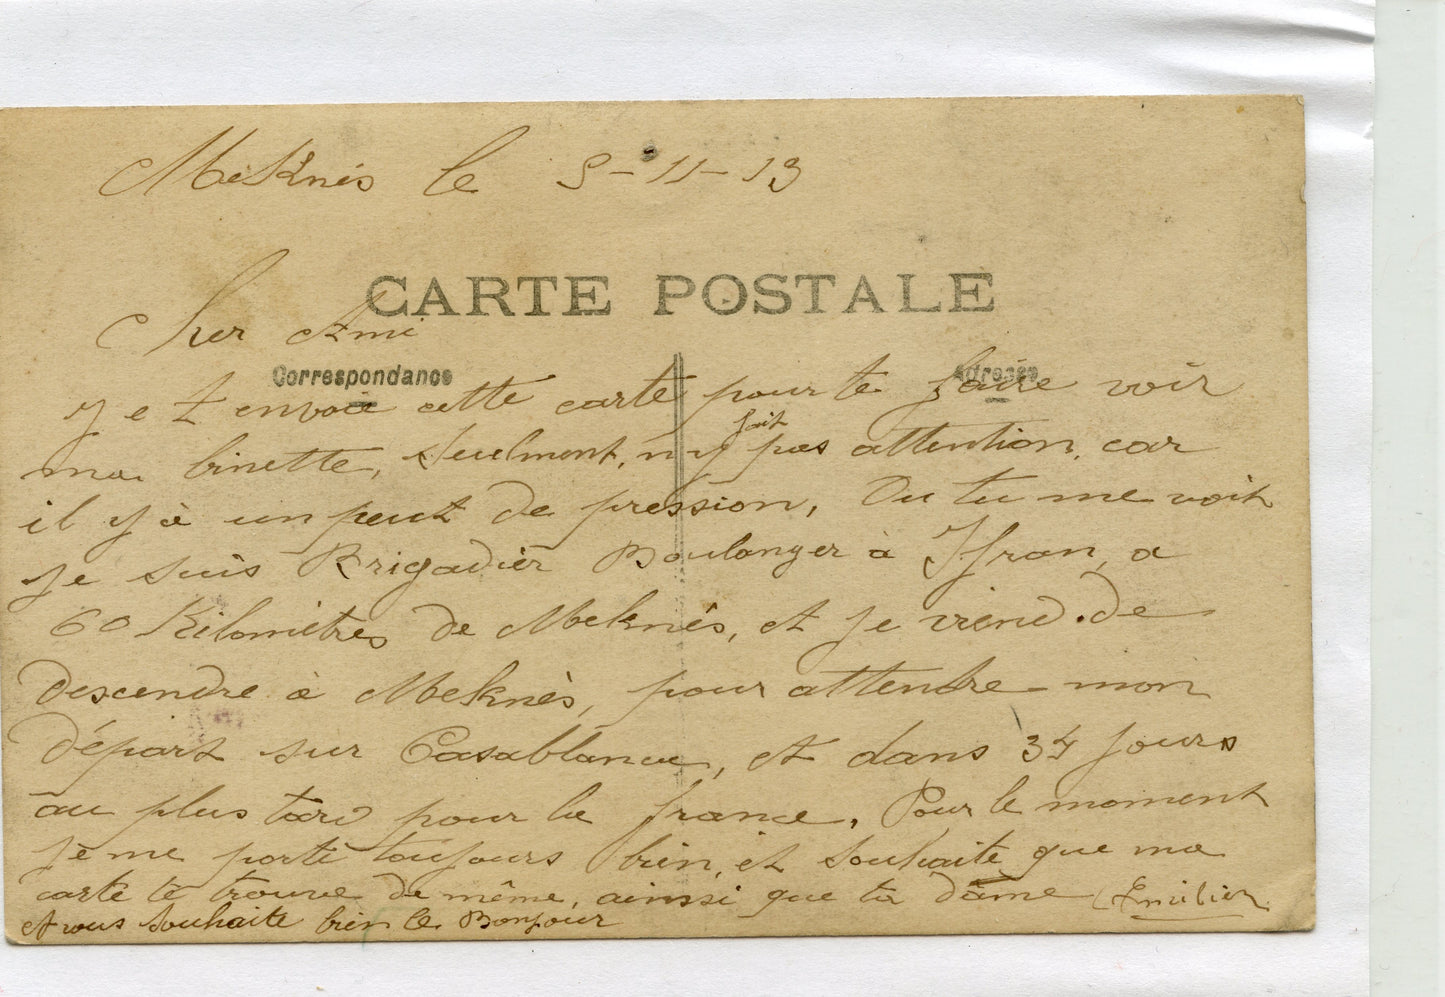 Meknés le 5-11-13
CARTE POSTALE
Cher Ami
Correspondance
Adresse
Je t envoie cette carte pour te faire voir
ma binette, seulment, n'y fait pas attention, car
il y à un peut de pression, Ou tu me voit
je suis Brigadier Boulanger à Ifran, a
60 Kilomètres de Meknés, et je viend de
descendre à Meknès, pour attendre mon
départ sur Casablanca, et dans 34 jours
au plus tard pour la france. Pour le moment
je me porte toujours bien, et souhaite que ma
carte te trouve de même, ainsi que ta dame
et vous souhaite bien le Bonjour